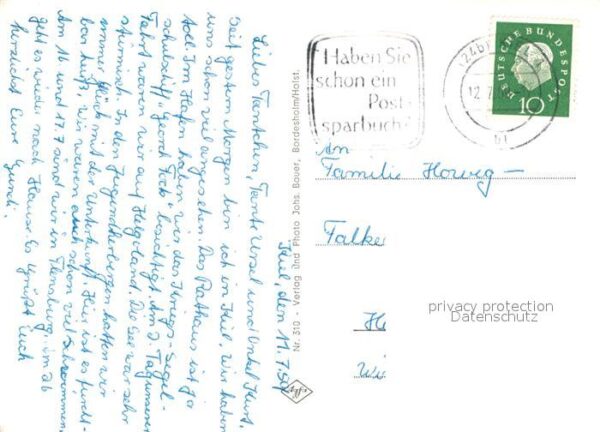 Kiel, den 11.7.59
Liebes Tantchen, Tante Ursel und Onkel Kurt,
Seit gestern Morgen bin ich in Kiel. Wir haben
uns schon viel angesehen. Das Rathaus ist ja
toll. Im Hafen haben wir das Kriegs-Segel-
schulschiff "Georch Fock" besichtigt. Am 2. Tag unserer
Fahrt waren wir auf Helgoland. Die See war sehr
stürmisch. In den Jugendherbergen hatten wir
immer Glück mit der Unterkunft. Hier ist es furcht-
bar heiß, wir waren auch schon viel Schwimmen.
Am 16 und 17.7 sind wir in Flensburg. Am 26
geht es wieder nach Hause. Es grüßt Euch
herzlichst Eure Gundi.
Nr. 310 - Verlag und Photo Johs. Bauer, Bordesholm/Holst.
Agfa
Haben Sie
schon ein
Post-
sparbuch?
(24b)
12.7.
bl
DEUTSCHE BUNDESPOST
10
An
Familie Horweg
Falke
H
Wi
privacy protection
Datenschutz